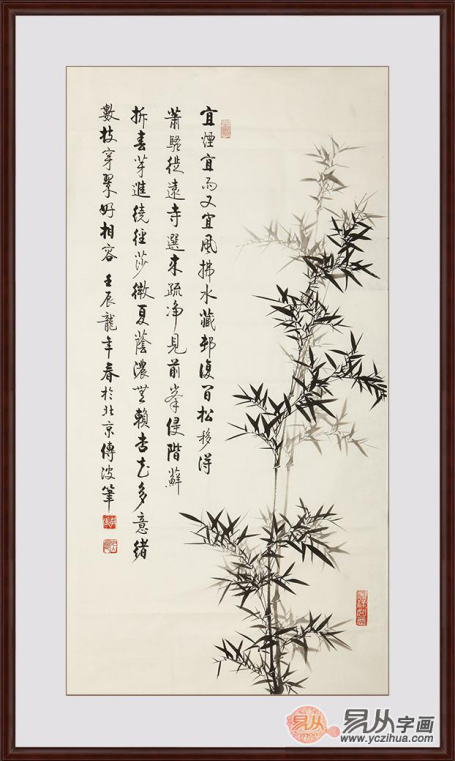 宜煙宜雨又宜風拂水藏邨復間松移得
蕭騷從遠寺選來疏净見前峯侵階蘚
拆春芽進繞徑莎微夏蔭濃無賴杏花多意緒
數枝穿翠好相容 壬辰龍年春於北京傅波筆
易从
易从字画
www.yczihua.com